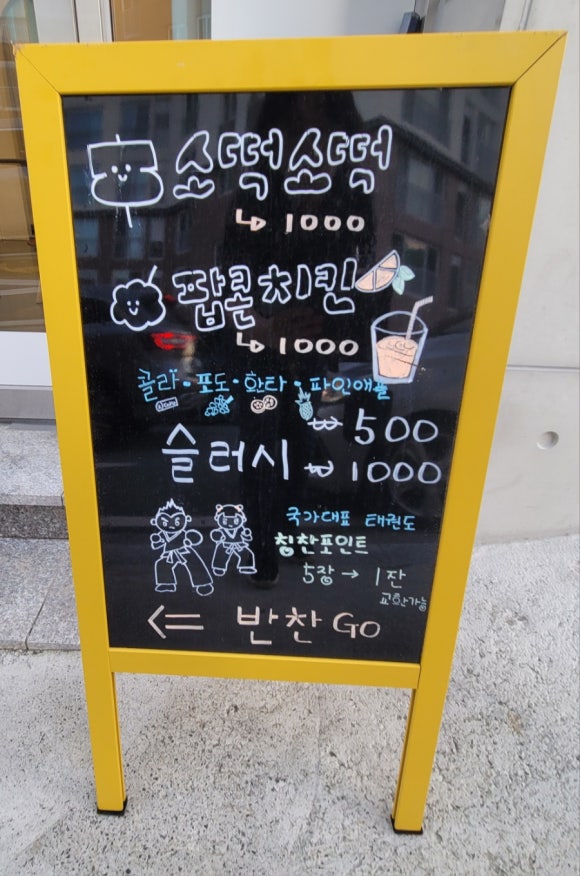 소떡소떡
↳ 1000
팝콘치킨
↳ 1000
콜라·포도·환타·파인애플
₩ 500
슬러시 ₩ 1000
국가대표 태권도
칭찬포인트
5장 → 1잔
교환가능
<= 반찬 GO